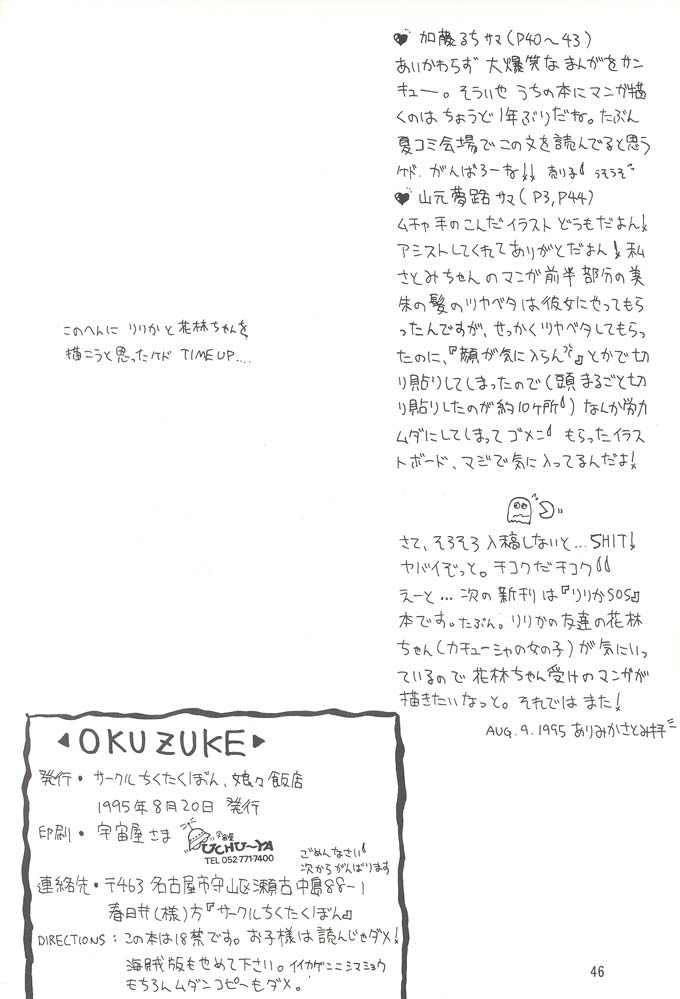 ♥ 加藤るちサマ(P40〜43)
あいかわらず 大爆笑な まんがを サン
キュー。そういや うちの本に マンガ描
くのは ちょうど 1年ぶりだね。たぶん
夏コミ会場で この文を読んでると思う
ケド、がんばろーね!! 売り子 うそうそ
♥ 山元夢路サマ(P3,P44)
ムチャ手のこんだイラスト どうもだよん!
アシストしてくれてありがとだよん! 私
さとみちゃん のマンガ前半部分の美
朱の髪のツヤベタは彼女にやってもら
ったんですが、せっかくツヤベタしてもらっ
たのに、『顔が気に入らん』とかで切
り貼りしてしまったので(頭まるごと切
り貼りしたのが約10ヶ所)なんか労力
ムダにしてしまって ゴメン もらったイラス
トボード、マジで気に入ってるんだよ!
このへんに りりかと花林ちゃんを
描こうと思ったケド TIME UP....
さて、そろそろ入稿しないと…SHIT!
ヤバイぞっと。チコクだチコク
えーと… 次の新刊は『りりかSOS』
本です。たぶん。りりかの友達の花林
ちゃん(カチューシャの女の子)が気にいっ
ているので 花林ちゃん受けのマンガが
描きたいなっと。それでは また!
AUG. 9. 1995 ありみかさとみ拝
◀OKUZUKE▶
発行・サークルちくたくぼん、娘々飯店
1995年8月20日 発行
印刷・宇宙屋さま 宇宙屋 UCHU〜YA
TEL 052-771-7400
ごめんなさい
次からがんばります
連絡先・〒463 名古屋市守山区瀬古中島88-1
春日井(様)方『サークルちくたくぼん』
DIRECTIONS:この本は18禁です。お子様は読んじゃダメ!
海賊版もやめて下さい。イイカゲンニシマショウ
もちろんムダンコピーもダメ。
46